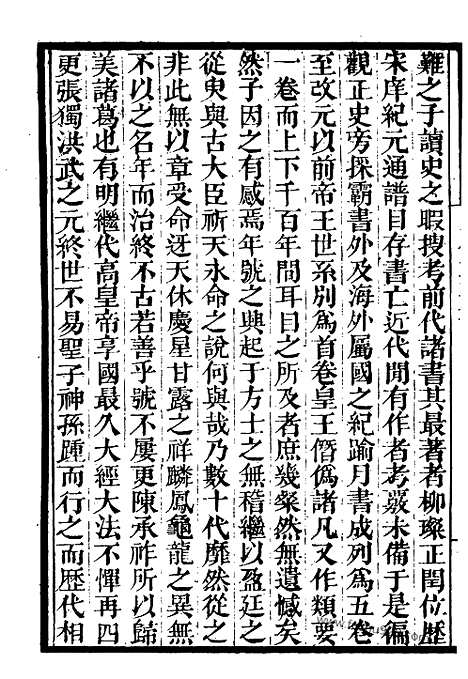 難之子讀史之暇搜考前代諸書其最著者柳璨正閏位歷
宋庠紀元通譜目存書亡近代間有作者考覈未備于是徧
觀正史旁採霸書外及海外屬國之紀踰月書成列為五卷
至改元以前帝王世系別為首卷皇王僭偽諸凡又作類要
一卷而上下千百年間耳目之所及者庶幾粲然無遺憾矣
然子因之有感焉年號之興起于方士之無稽繼以盈廷之
從臾與古大臣祈天永命之說何與哉乃數十代靡然從之
非此無以章受命迓天休慶星甘露之祥麟鳳龜龍之異無
不以之名年而治終不古若善乎號不屢更陳承祚所以歸
美諸葛也有明繼代高皇帝享國最久大經大法不憚再四
更張獨洪武之元終世不易聖子神孫踵而行之而歷代相